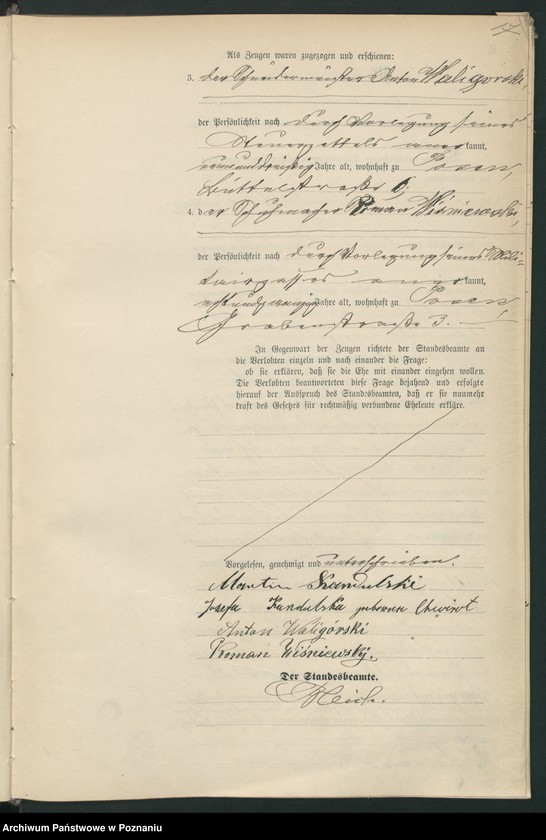 Als Zeugen waren zugezogen und erschienen:
3. der Schneidermeister Anton Waligorski,
der Persönlichkeit nach durch Vorlegung seines
Steuerzettels anerkannt,
neununddreißig Jahre alt, wohnhaft zu Posen,
Büttelstraße 6.
4. der Schuhmacher Roman Wiśniewski,
der Persönlichkeit nach durch Vorlegung seines Mili-
tairpasses anerkannt,
achtundzwanzig Jahre alt, wohnhaft zu Posen,
Grabenstraße 3.
In Gegenwart der Zeugen richtete der Standesbeamte an
die Verlobten einzeln und nach einander die Frage:
ob sie erklären, daß sie die Ehe mit einander eingehen wollen.
Die Verlobten beantworteten diese Frage bejahend und erfolgte
hierauf der Ausspruch des Standesbeamten, daß er sie nunmehr
kraft des Gesetzes für rechtmäßig verbundene Eheleute erkläre.
Vorgelesen, genehmigt und unterschrieben.
Martin Kandulski
Józefa Kandulska geborene Chwirot
Anton Waligórski
Roman Wiśniewski.
Der Standesbeamte.
Archiwum Państwowe w Poznaniu